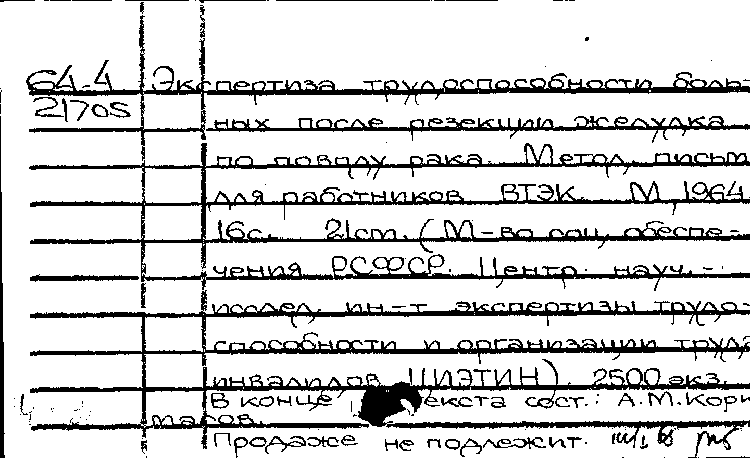 64-4 Экспертиза трудоспособности боль-
21705
ных после резекции желудка
по поводу рака. Метод. письм
для работников ВТЭК. М., 1964.
16с. 21см. (М-во соц. обеспе-
чения РСФСР. Центр. науч.-
исслед. ин-т экспертизы трудо-
способности и организации труда
инвалидов ЦИЭТИН). 2500 экз.
В конце текста сост.: А.М.Кори
маров.
Продаже не подлежит.